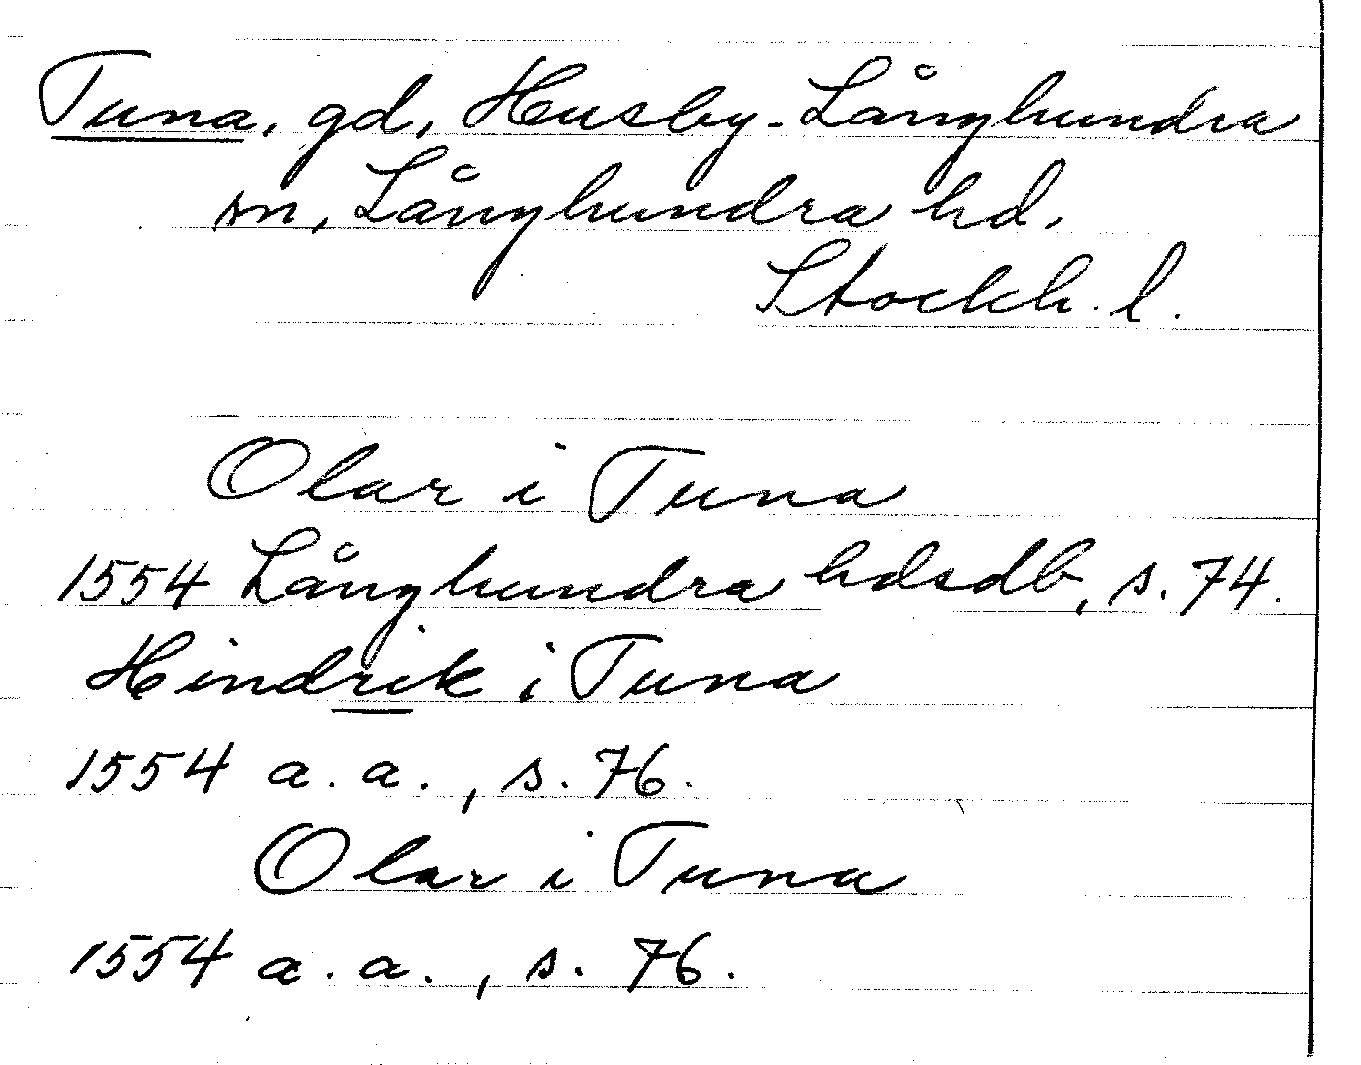 Tuna, gd, Husby-Långhundra
sn, Långhundra hd.
Stockh. l.
Olar i Tuna
1554 Långhundra hdsdb, s. 74.
Hindrik i Tuna
1554 a. a., s. 76.
Olar i Tuna
1554 a. a., s. 76.